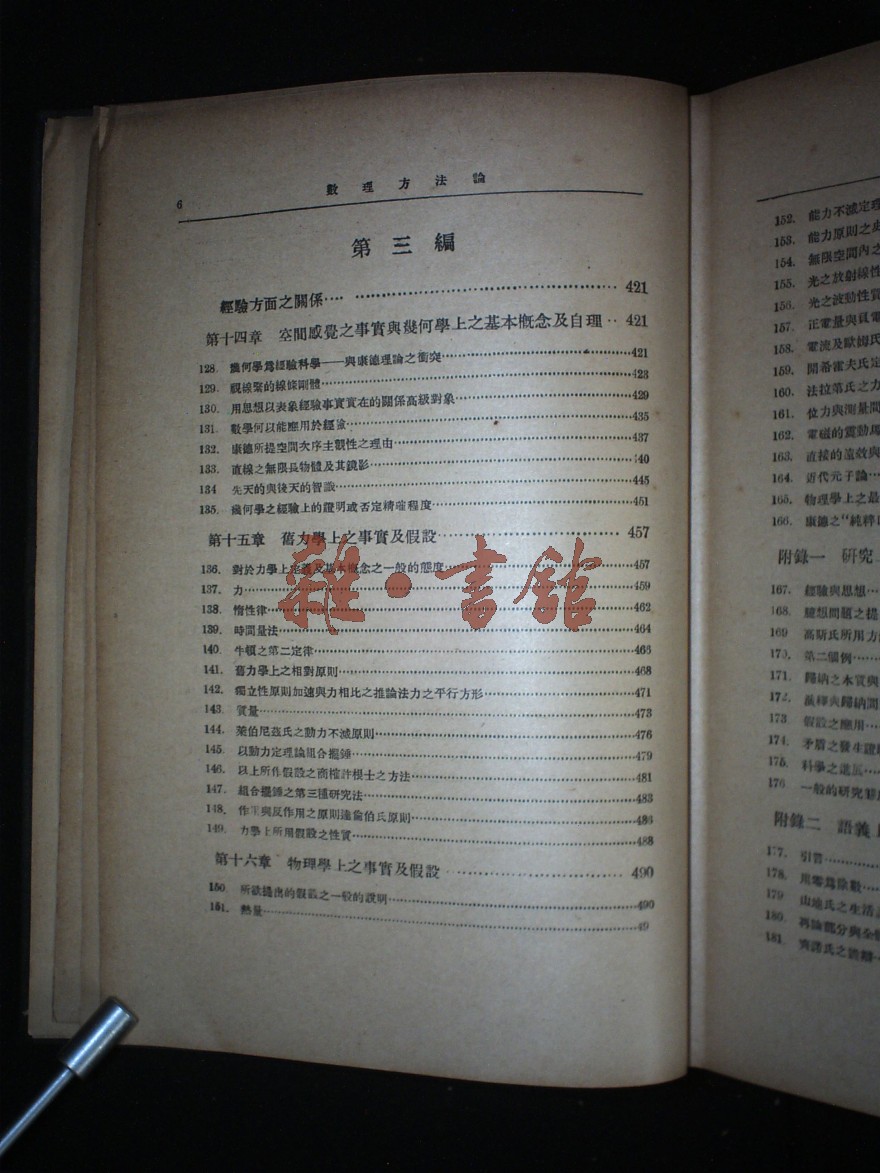 6
數理方法論
第三編
經驗方面之關係···· ··· 421
第十四章 空間感覺之事實與幾何學上之基本概念及自理·· 421
128. 幾何學爲經驗科學——與康德理論之衝突···421
129. 視線緊的線條剛體···423
130. 用思想以表象經驗事實實在的關係高級對象···429
131. 數學何以能應用於經驗···435
132. 康德所提空間次序主觀性之理由···437
133. 直線之無限長物體及其鏡影···140
134 先天的與後天的智識···445
135. 幾何學之經驗上的證明或否定精確程度···451
第十五章 舊力學上之事實及假設··· 457
136. 對於力學上定義及基本概念之一般的態度···457
137. 力···459
138. 惰性律···462
139. 時間量法···464
140. 牛頓之第二定律···466
141. 舊力學上之相對原則···468
142. 獨立性原則加速與力相比之推論法力之平行方形···471
143. 質量···473
144. 萊伯尼茲氏之動力不滅原則···476
145. 以動力定理論組合擺錘···479
146. 以上所作假設之商榷許根士之方法···481
147. 組合擺錘之第三種研究法···483
148. 作用與反作用之原則達倫伯氏原則···486
149. 力學上所用假設之性質···488
第十六章 物理學上之事實及假設··· 490
150. 所欲提出的假設之一般的說明···490
151. 熱量···49
雜·書館
152. 能力不滅定理
153. 能力原則之
154. 無限空間內之
155. 光之放射線性
156. 光之波動性質
157. 正電量與負電
158. 電流及歐姆氏
159. 開希霍夫氏定
160. 法拉第氏之力
161. 位力與測量間
162. 電磁的震動
163. 直接的遠效與
164. 近代元子論···
165. 物理學上之最
166. 康德之“純粹
附錄一 研究
167. 經驗與思想···
168. 臆想問題之提
169 高斯氏所用方
170. 第二個例···
171. 歸納之本質與
172. 演繹與歸納間
173. 假設之應用···
174. 矛盾之發生證
175. 科學之進展···
176 一般的研究
附錄二 語義
177. 引言···
178. 用零爲除數···
179 山達氏之生活
180. 再論部分與全
181. 齊諾氏之詭辯···